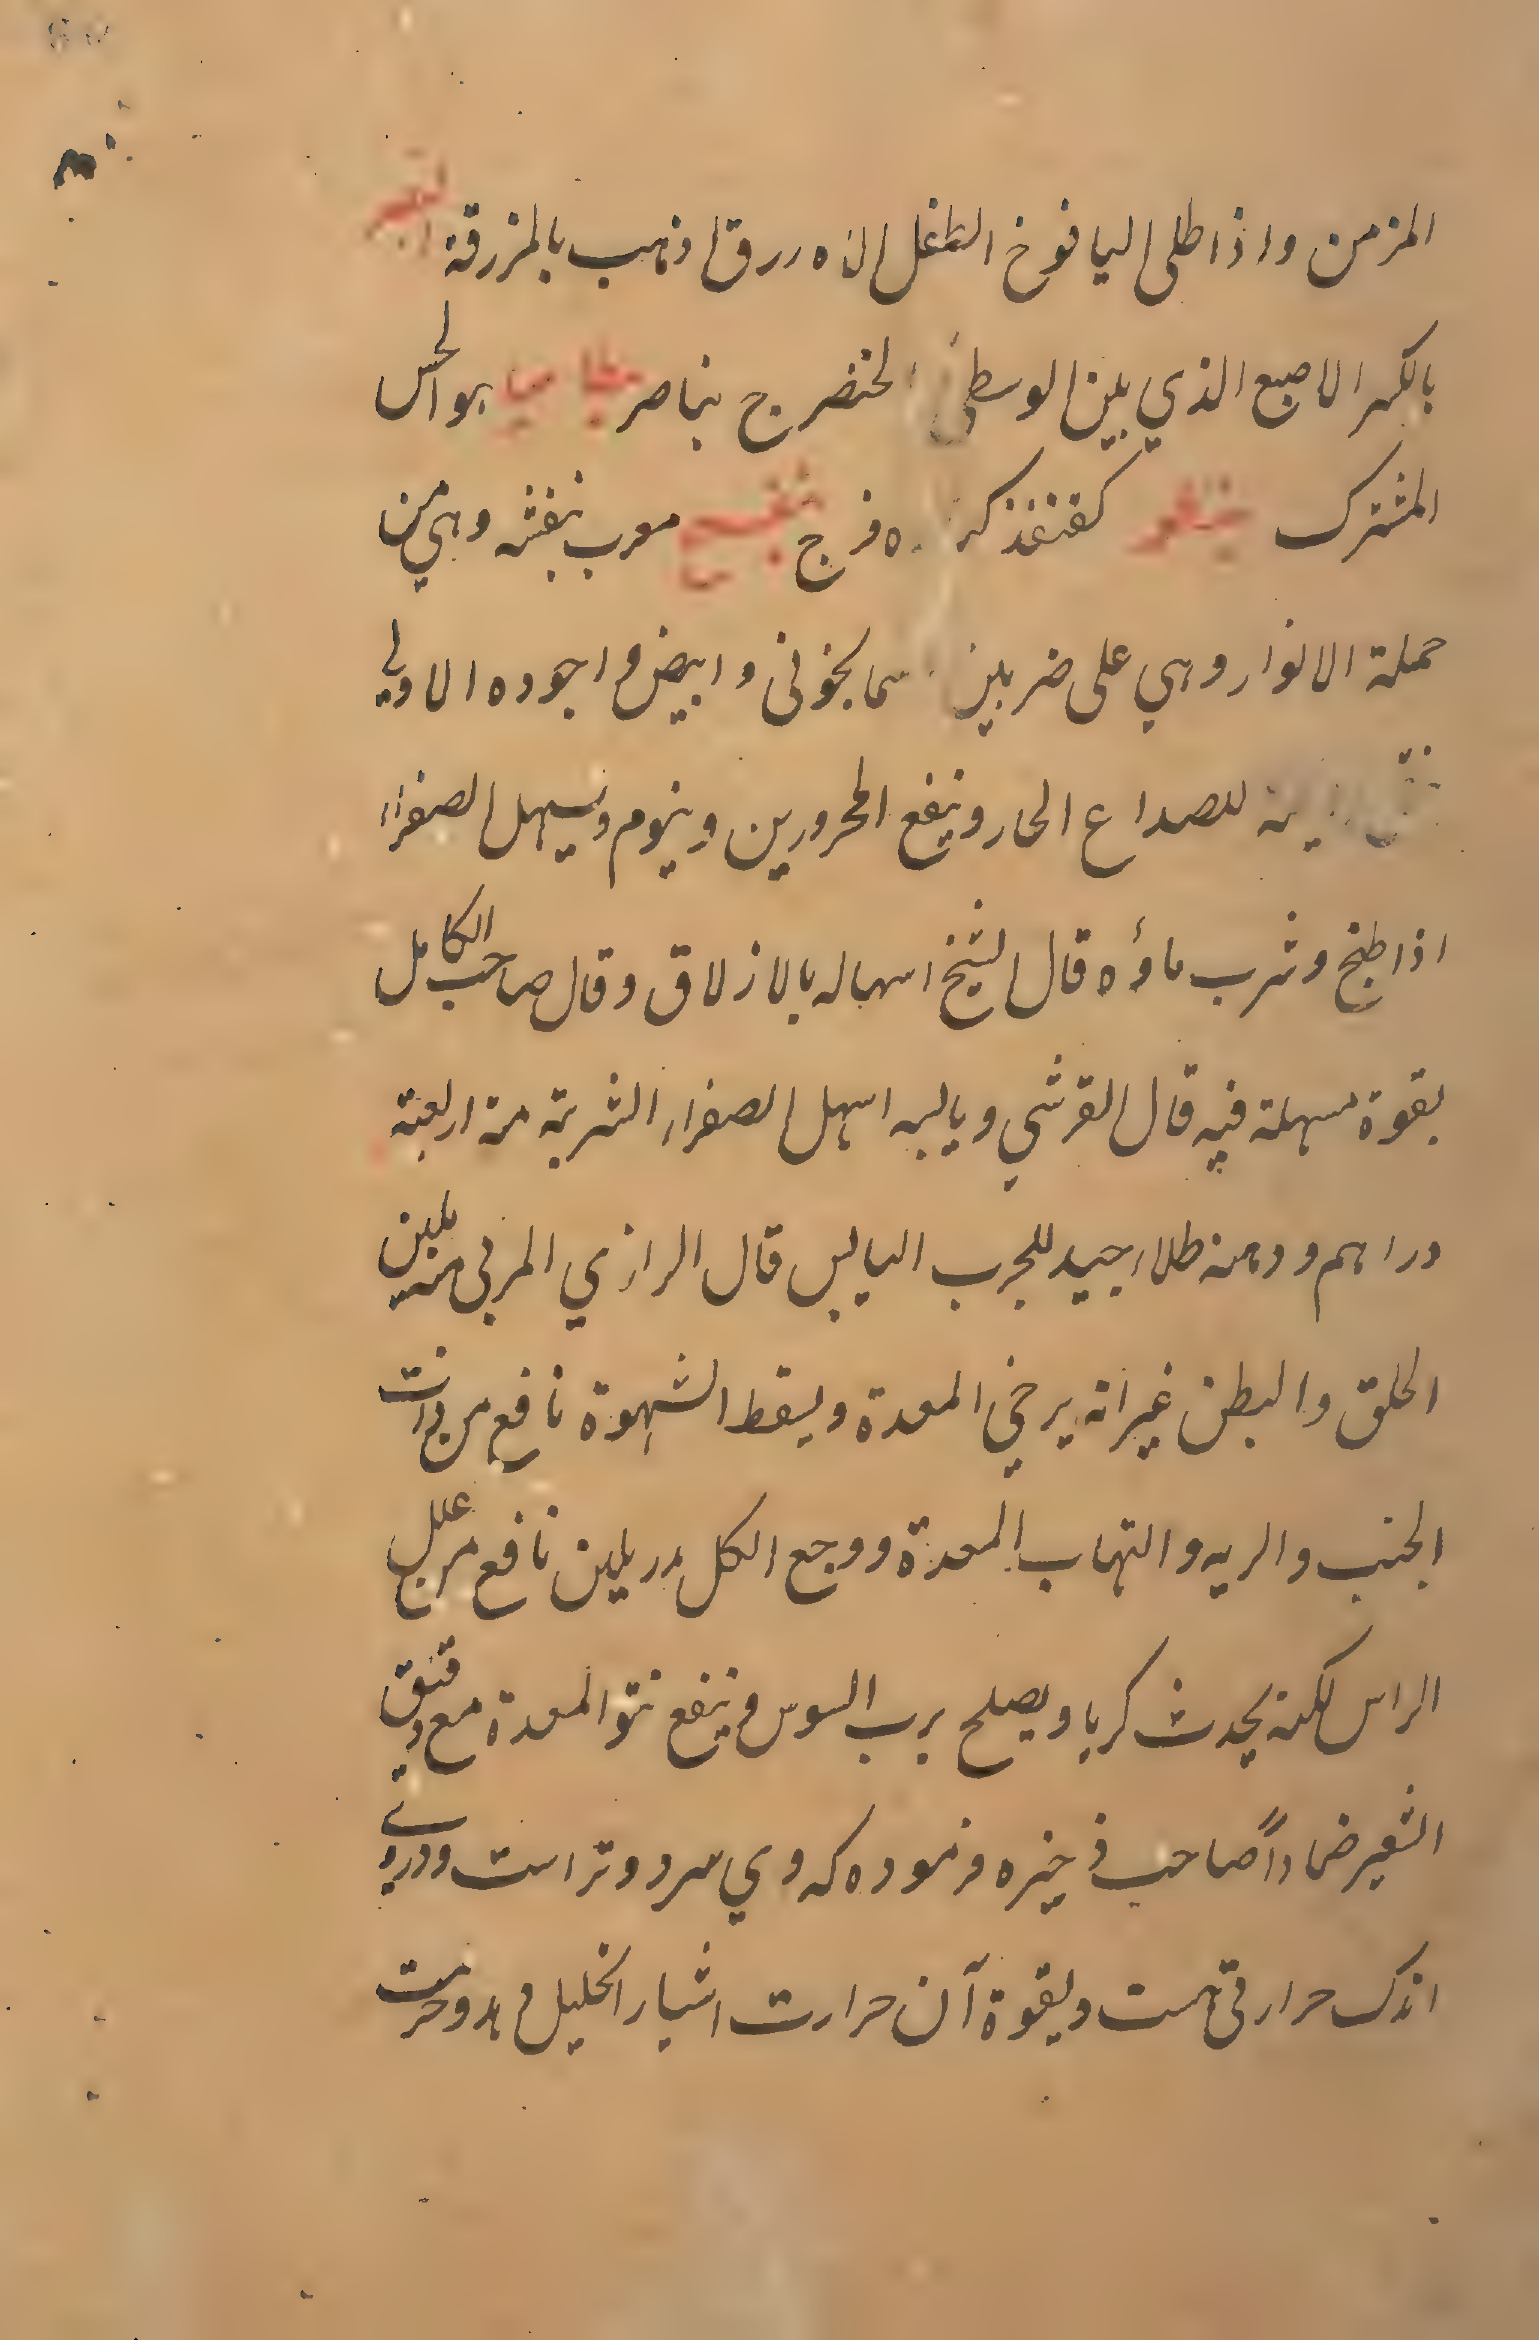 المزمن واذا طلى اليافوخ الطفل الازرق ذهب بالزرقة البنصر
بالكسر الاصبع الذي بين الوسطى الخنصر ج بناصر هو الحس
المشترك كقنفذ كه فرج بنفسج معرب بنفشه وهي من
جملة الانوار وهي على ضربين اسمانجوني وابيض واجوده الاولي
للصداع الحار وينفع المحرورين وينوم ويسهل الصفراء
اذا طبخ وشرب ماؤه قال الشيخ اسهاله بالازلاق وقال صاحب الكامل
بقوة مسهلة فيه قال القرشي ويابسه اسهل الصفراء الشربة منه اربعة
دراهم ودهنه طلاء جيد للجرب اليابس قال الرازي المربى منه يلين
الحلق والبطن غير انه يرخي المعدة ويسقط الشهوة نافع من ذات
الجنب والريه والتهاب المعدة ووجع الكلى مدر يلين نافع من علل
الراس لكنه يحدث كربا ويصلح برب السوس وينفع نتو المعدة مع دقيق
الشعير ضمادًا صاحب ذخيره فرموده كه وي سرد وتر است ودروے
اندك حرارتى هست وبقوة آن حرارت اشيا را تحليل مى